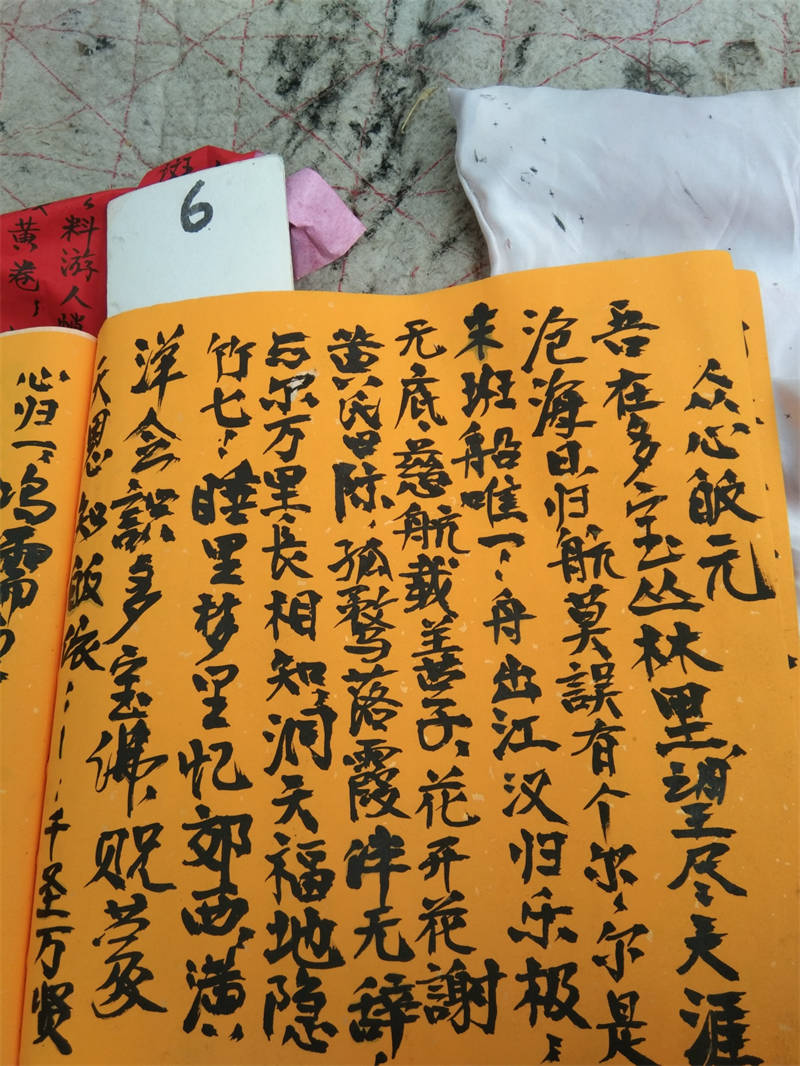 6
众心皈元
吾在多宝丛林里望尽、天涯
沧海日归航莫誤有个尔、尔是
末班船唯一、舟出江汉归乐极、
无底、慈航载善子、花开花謝
黄昏际、孤鹜落霞伴无辞、
与尔万里长相知、洞天福地隐
竹七、睡里梦里忆郊西、潢
洋会識多宝佛、贶
天恩知皈依、千圣万贤
心归一、坞需
料游人
黄卷、